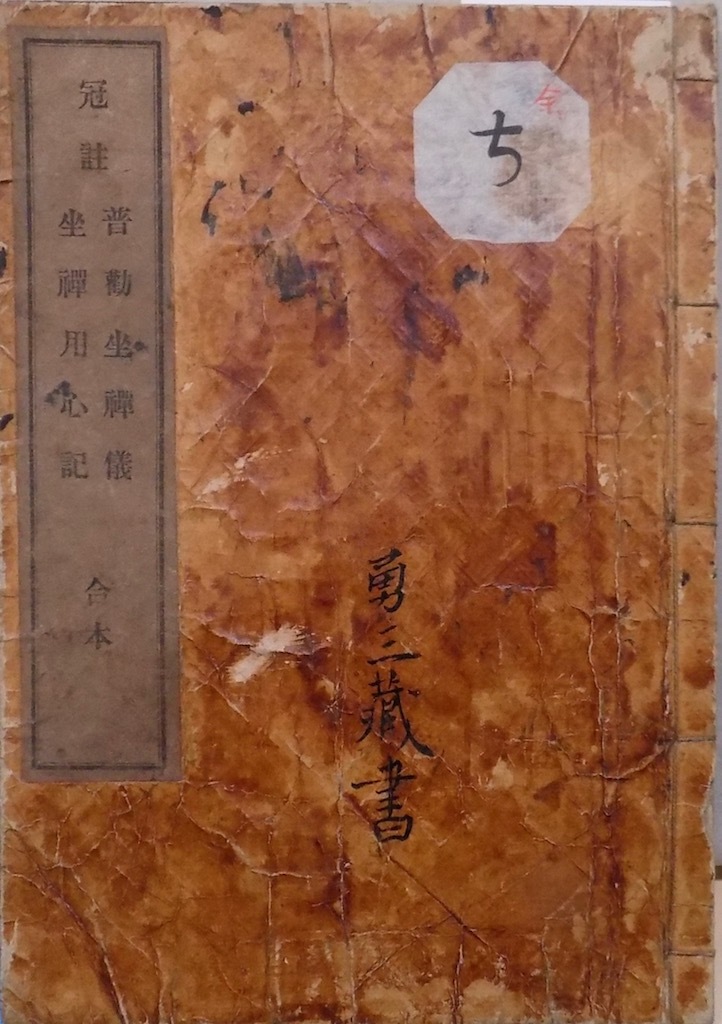 冠註
普勸坐禪儀
坐禪用心記
合本
ち
勇三藏書